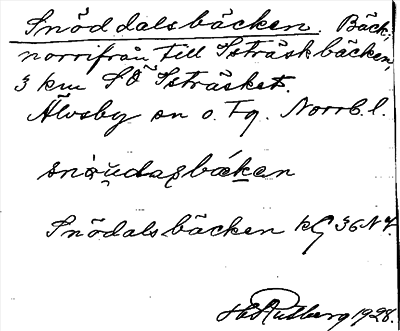 Snöddalsbäcken. Bäck,
norrifrån till Isträskbäcken,
3 km SÖ Isträsket.
Älvsby sn o. Tg. Norrb. l.
Snödalsbäcken kG 36 NV.
Rutberg 1928.